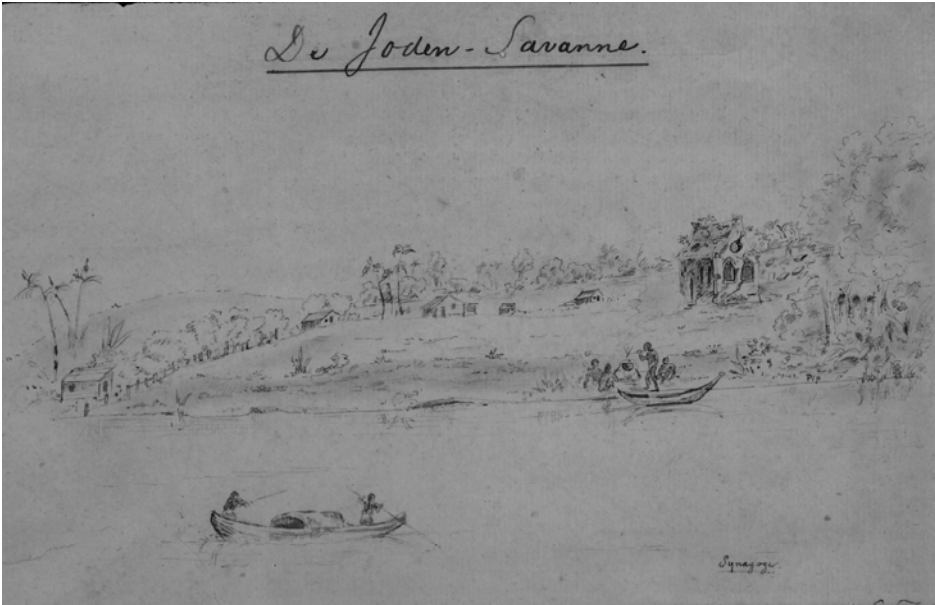 De Joden-Savanne.
Synagoge.